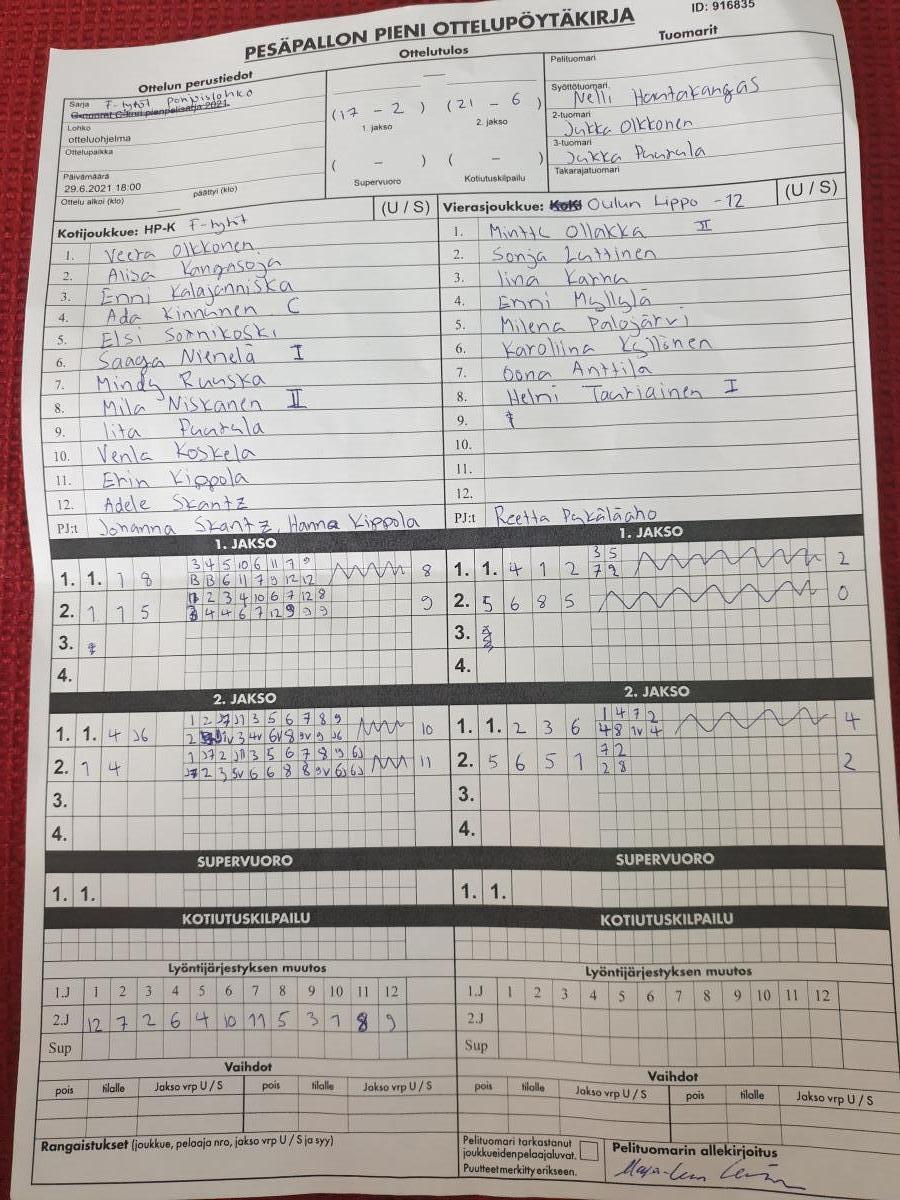 ID: 916835
PESÄPALLON PIENI OTTELUPÖYTÄKIRJA
Ottelun perustiedot
Ottelutulos
Tuomarit
Sarja F-tytöt Pohjoislohko
Lohko
otteluohjelma
Ottelupaikka
Päivämäärä
29.6.2021 18:00
Ottelu alkoi (klo)
päättyi (klo)
(17 - 2)
(21 - 6)
1. jakso
2. jakso
( - )
( - )
Supervuoro
Kotiutuskilpailu
Pelituomari
Syöttötuomari
Nelli Hantakangas
2-tuomari
Jukka Olkkonen
3-tuomari
Jukka Puurula
Takarajatuomari
Kotijoukkue: HP-K F-tytöt
(U / S)
1. Veera Olkkonen
2. Alisa Kangasoja
3. Enni Kalajanniska
4. Ada Kinnunen C
5. Elsi
6. Saaga Nienelä I
7. Mindy Ruuska
8. Mila Niskanen II
9. Iita Puurula
10. Venla Koskela
11. Erin Kippola
12. Adele Skantz
PJ:t Johanna Skantz, Hanna Kippola
Vierasjoukkue: Oulun Lippo -12
(U / S)
1. Ollakka II
2. Sonja Luttinen
3. Iina Karna
4. Enni Myllylä
5. Milena Palojärvi
6. Karoliina Kyllönen
7. Oona Anttila
8. Helmi Tauriainen I
9.
10.
11.
12.
PJ:t Reetta Pykäläaho
1. JAKSO
1. 1. 1 8
3 4 5 10 6 11 7 9
B B 6 11 7 9 12 12
8
2. 1 1 5
1 2 3 4 10 6 7 12 8
3 4 4 6 7 12 9 9 9
9
3.
4.
1. JAKSO
1. 1. 4 1 2
3 5
7 2
2
2. 5 6 8 5
0
3.
4.
2. JAKSO
1. 1. 4 J6
10
2. 1 4
11
3.
4.
2. JAKSO
1. 1. 2 3 6
1 4 7 2
4 8 1v 4
4
2. 5 6 5 1
7 2
2 8
2
3.
4.
SUPERVUORO
1. 1.
SUPERVUORO
1. 1.
KOTIUTUSKILPAILU
KOTIUTUSKILPAILU
Lyöntijärjestyksen muutos
1.J 1 2 3 4 5 6 7 8 9 10 11 12
2.J 12 7 2 6 4 10 11 5 3 1 8 9
Sup
Lyöntijärjestyksen muutos
1.J 1 2 3 4 5 6 7 8 9 10 11 12
2.J
Sup
Vaihdot
pois tilalle Jakso vrp U / S pois tilalle Jakso vrp U / S
Vaihdot
pois tilalle Jakso vrp U / S pois tilalle Jakso vrp U / S
Rangaistukset (joukkue, pelaaja nro, jakso vrp U / S ja syy)
Pelituomari tarkastanut
joukkueidenpelaajaluvat.
Puutteet merkitty erikseen.
Pelituomarin allekirjoitus